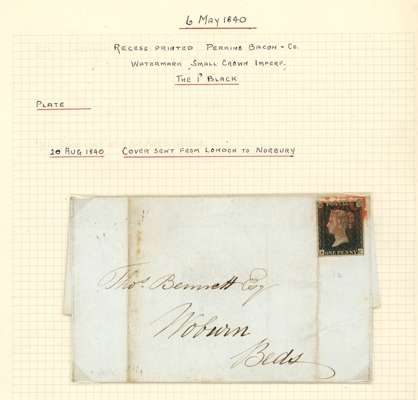 6 MAY 1840
RECESS PRINTED PERKINS BACON + Co.
WATERMARK SMALL CROWN IMPERF.
THE 1ᴰ BLACK
PLATE
20 AUG 1840 COVER SENT FROM LONDON TO NORBURY
Thos. Bennett Esq
Woburn
Beds
ONE PENNY